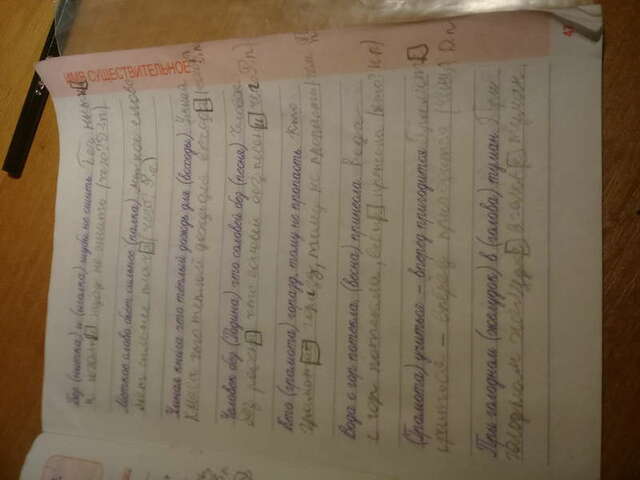 Без (нитка) и (иголка) шубы не сшить. Без нитки
и иголки шубу не сшить (чего? Р.п)
Меткое слово бьет сильнее (палка). меткое слово
бьет сильнее палки (чего? Р.п)
Умная книга что тёплый дождь для (всходы). Умная
книга что тёплый дождь для всходов
Человек без (Родина) что соловей без (песня). Человек
без родины что соловей без песни чего Р.п)
Кто (грамота) горазд, тому не пропасть. Кто
грамотой горазд, тому не пропасть (чем
Вода с гор потекла, (весна) принесла. Вода
с гор потекла, весна принесла (кто? И.п)
(Грамота) учиться – вперед пригодится. Грамоте
учиться – вперед пригодится (чему Д.п
При голодном (желудок) в (голова) туман. При
голодном желудке в голове туман
ИМЯ СУЩЕСТВИТЕЛЬНОЕ